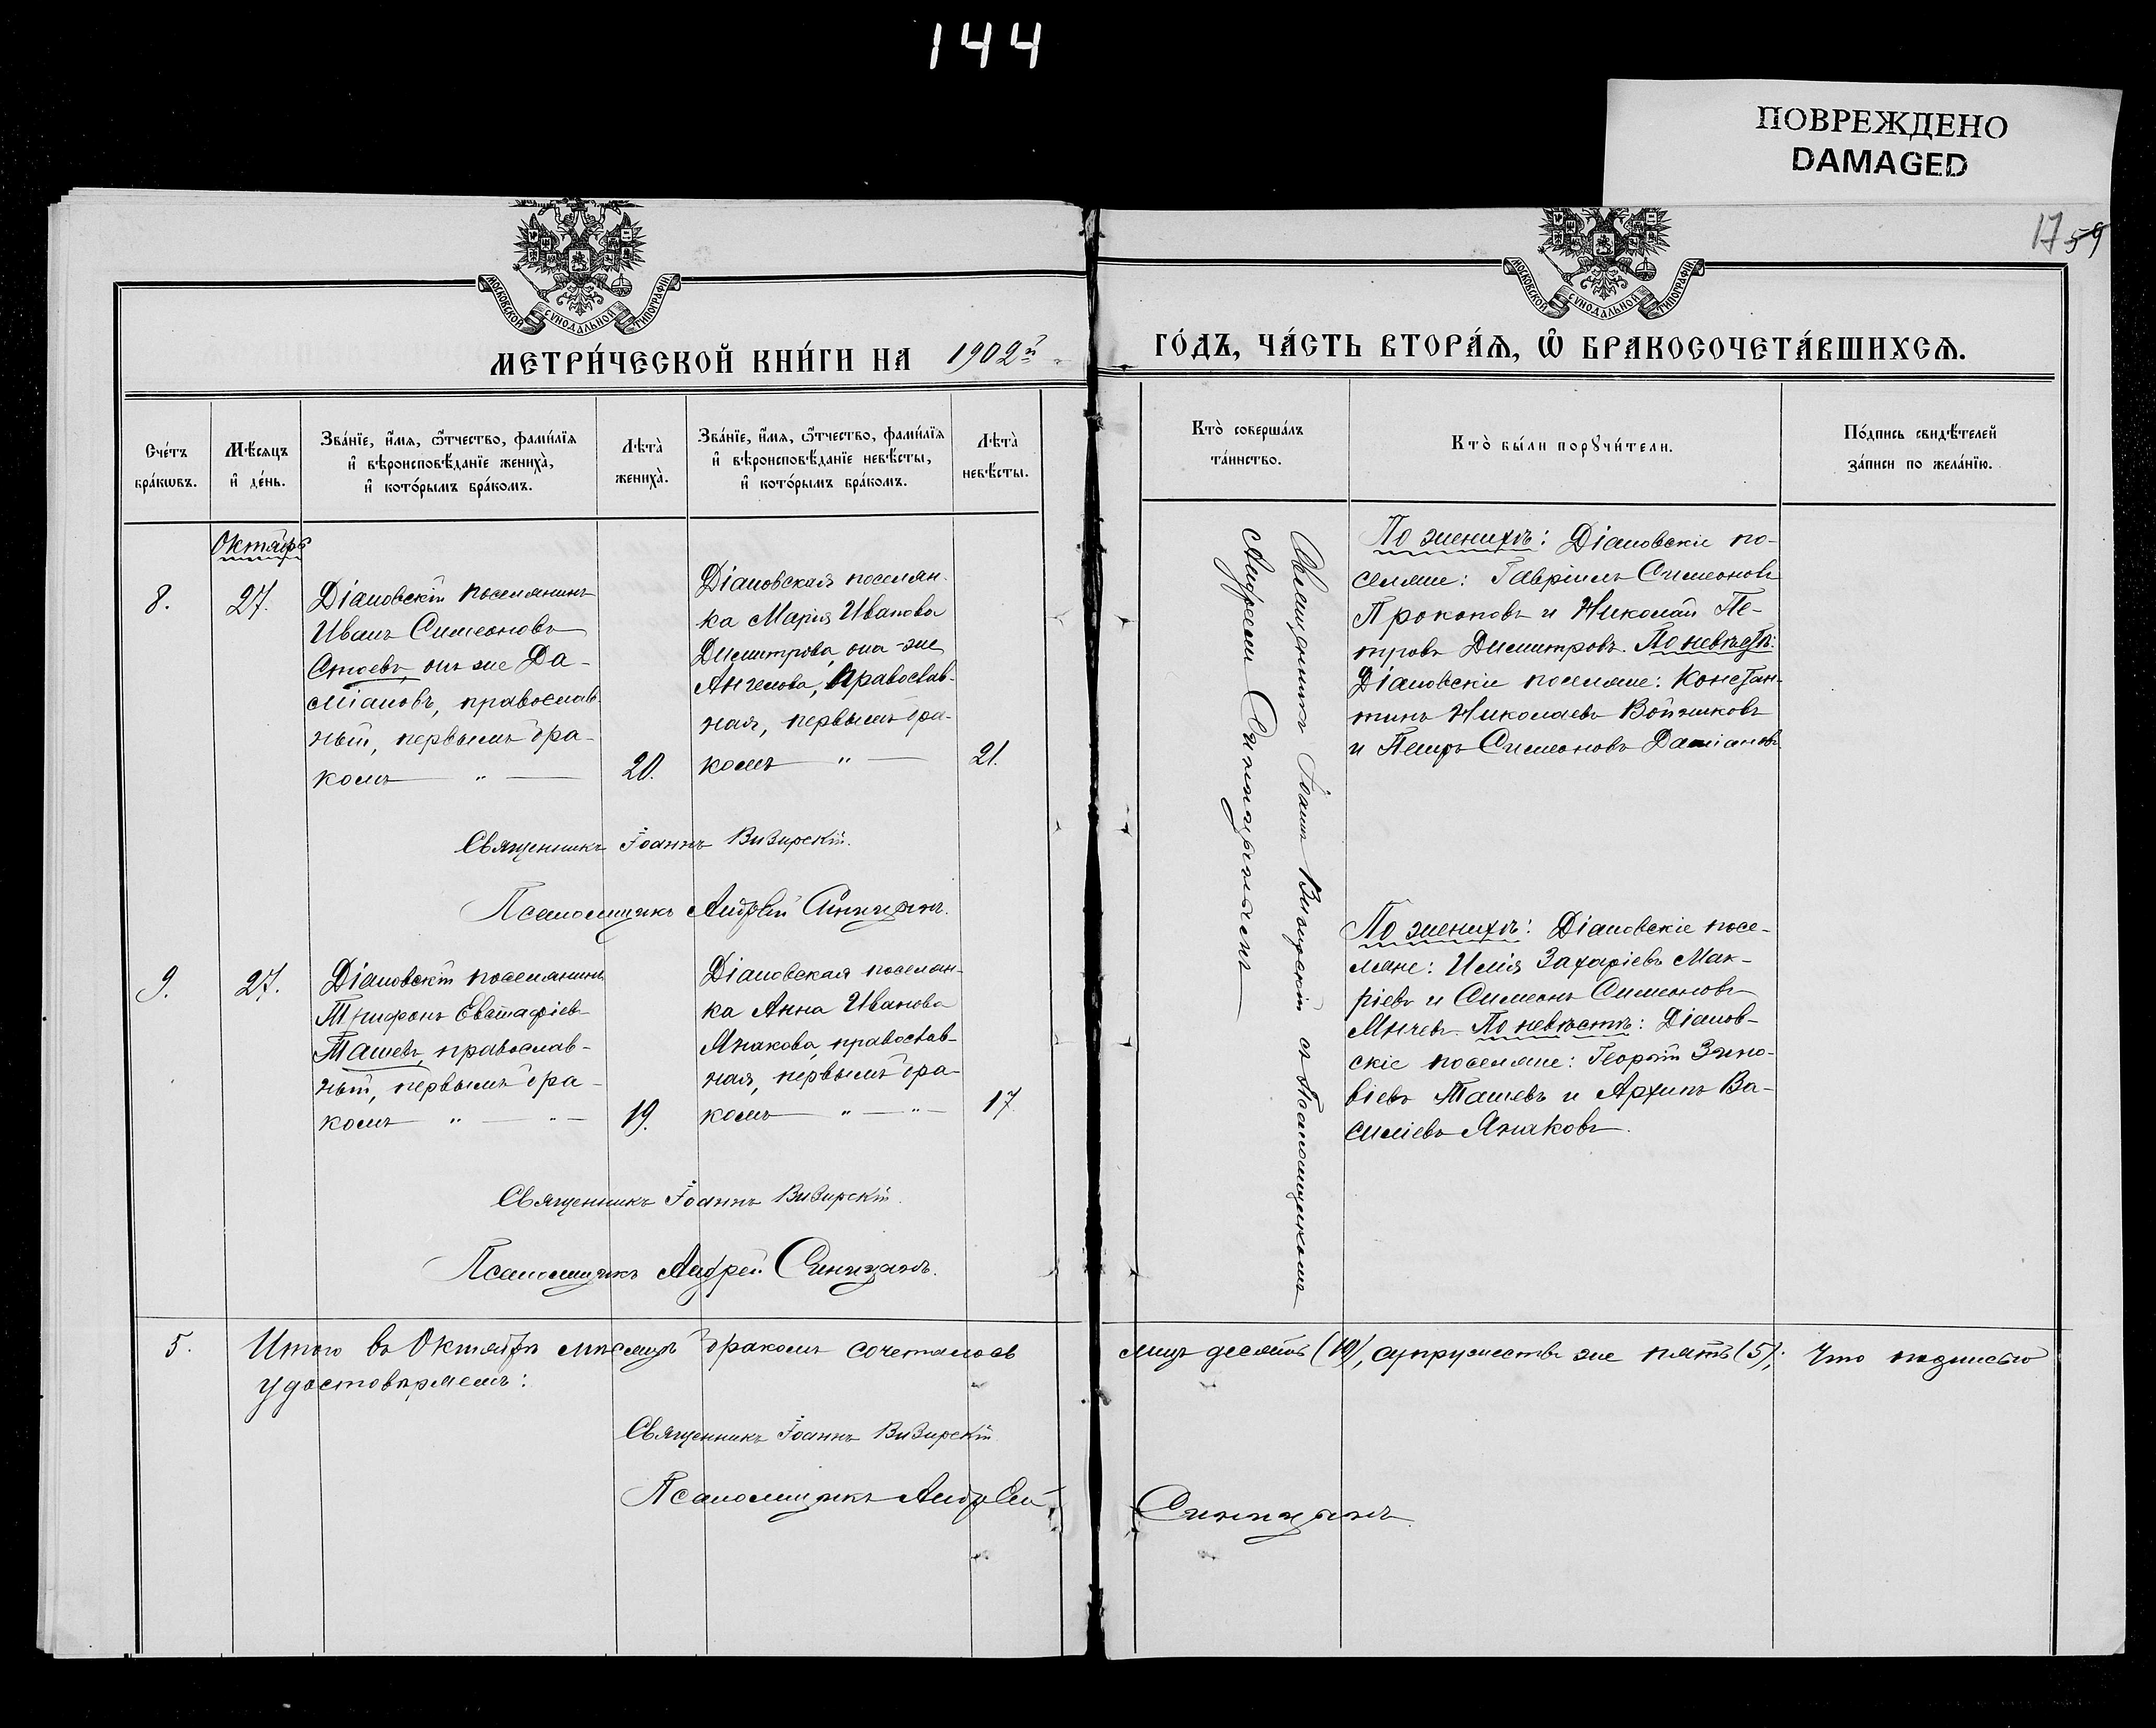 144
ПОВРЕЖДЕНО
DAMAGED
17 59
МОСКОВСКОЙ СѴНОДАЛЬНОЙ ТИПОГРАФІИ
МОСКОВСКОЙ СѴНОДАЛЬНОЙ ТИПОГРАФІИ
МЕТРИ́ЧЕСКОЙ КНИ́ГИ НА 1902й
ГО́ДЪ, ЧА́СТЬ ВТОРА́Ѧ, Ѽ БРАКОСОЧЕТА́ВШИХСѦ.
Сче́тъ
бра́кѡвъ.
Мѣ́сяцъ
и҆ де́нь.
Зва́нїе, и҆́мя, ѻ҆́тчество, фами́лїя
и҆ вѣроисповѣ́данїе жениха̀,
и҆ кото́рымъ бра́комъ.
Лѣта̀
жениха̀.
Зва́нїе, и҆́мя, ѻ҆́тчество, фами́лїя
и҆ вѣроисповѣ́данїе невѣ́сты,
и҆ кото́рымъ бра́комъ.
Лѣта̀
невѣ́сты.
Кто̀ соверша́лъ
та́инство.
Кто̀ бы́ли порꙋчи́тели.
По́дпись свидѣ́телей
за́писи по жела́нїю.
Октябрь
8.
27.
Діановскій поселянинъ
Иванъ Симеоновъ
Стоевъ, онъ же Да-
міановъ, православ-
ный, первымъ бра-
комъ — „ —
20.
Діановская поселян-
ка Марія Иванова
Димитрова, она-же
Ангелова, православ-
ная, первымъ бра-
комъ — „ —
21.
Священникъ Іоаннъ Визирскій съ Псаломщикомъ
Андреемъ
По женихѣ: Діановскіе по-
селяне: Гавріилъ Симеоновъ
Прокоповъ и Николай Пе-
тровъ Димитровъ. По невѣстѣ:
Діановскіе поселяне: Констан-
тинъ Николаевъ Войниковъ
и Петръ Симеоновъ Даміановъ
Священникъ Іоаннъ Визирскій.
Псаломщикъ Андрей Синицынъ.
9.
27.
Діановскій поселянинъ
Трифонъ Евстафіевъ
Ташевъ, православ-
ный, первымъ бра-
комъ „ — „ —
19.
Діановская поселян-
ка Анна Иванова
Янакова, православ-
ная, первымъ бра-
комъ — „ — „ —
17
По женихѣ: Діановскіе посе-
ляне: Илія Захаріевъ Мак-
ріевъ и Симеонъ Симеоновъ
Минчевъ. По невѣстѣ: Діанов-
скіе поселяне: Георгій Зино-
віевъ Ташевъ и Архипъ Ва-
силіевъ Янаковъ.
Священникъ Іоаннъ Визирскій.
Псаломщикъ Андрей Синицынъ.
5. Итого въ Октябрѣ мѣсяцѣ бракомъ сочеталось лицъ десять (10), супружествъ же пять (5); что подписью
удостовѣряемъ:
Священникъ Іоаннъ Визирскій
Псаломщикъ Андрей Синицынъ.